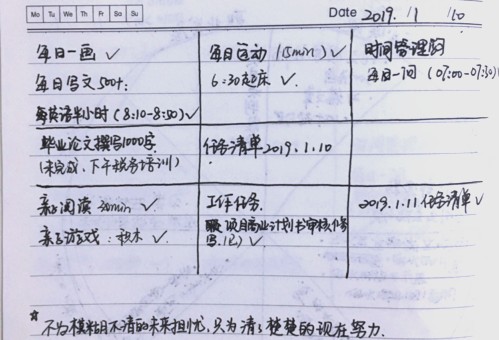 Mo Tu We Th Fr Sa Su
Date 2019. /1 /10
每日一画 ✓
每日写文500+:
每英语半小时 (8:10-8:50) ✓
每日运动 15min) ✓
6:30起床 ✓
时间管理
每日一问 (07:00-07:30)
毕业论文撰写1000字
(未完成、下午税务培训)
任务清单2019.1.10
亲子阅读 30min ✓
亲子游戏: 积木 ✓
工作任务
项目商业计划书审核修
✓
2019.1.11任务清单 ✓
☆ 不为模糊不清的未来担忧,只为清清楚楚的现在努力.